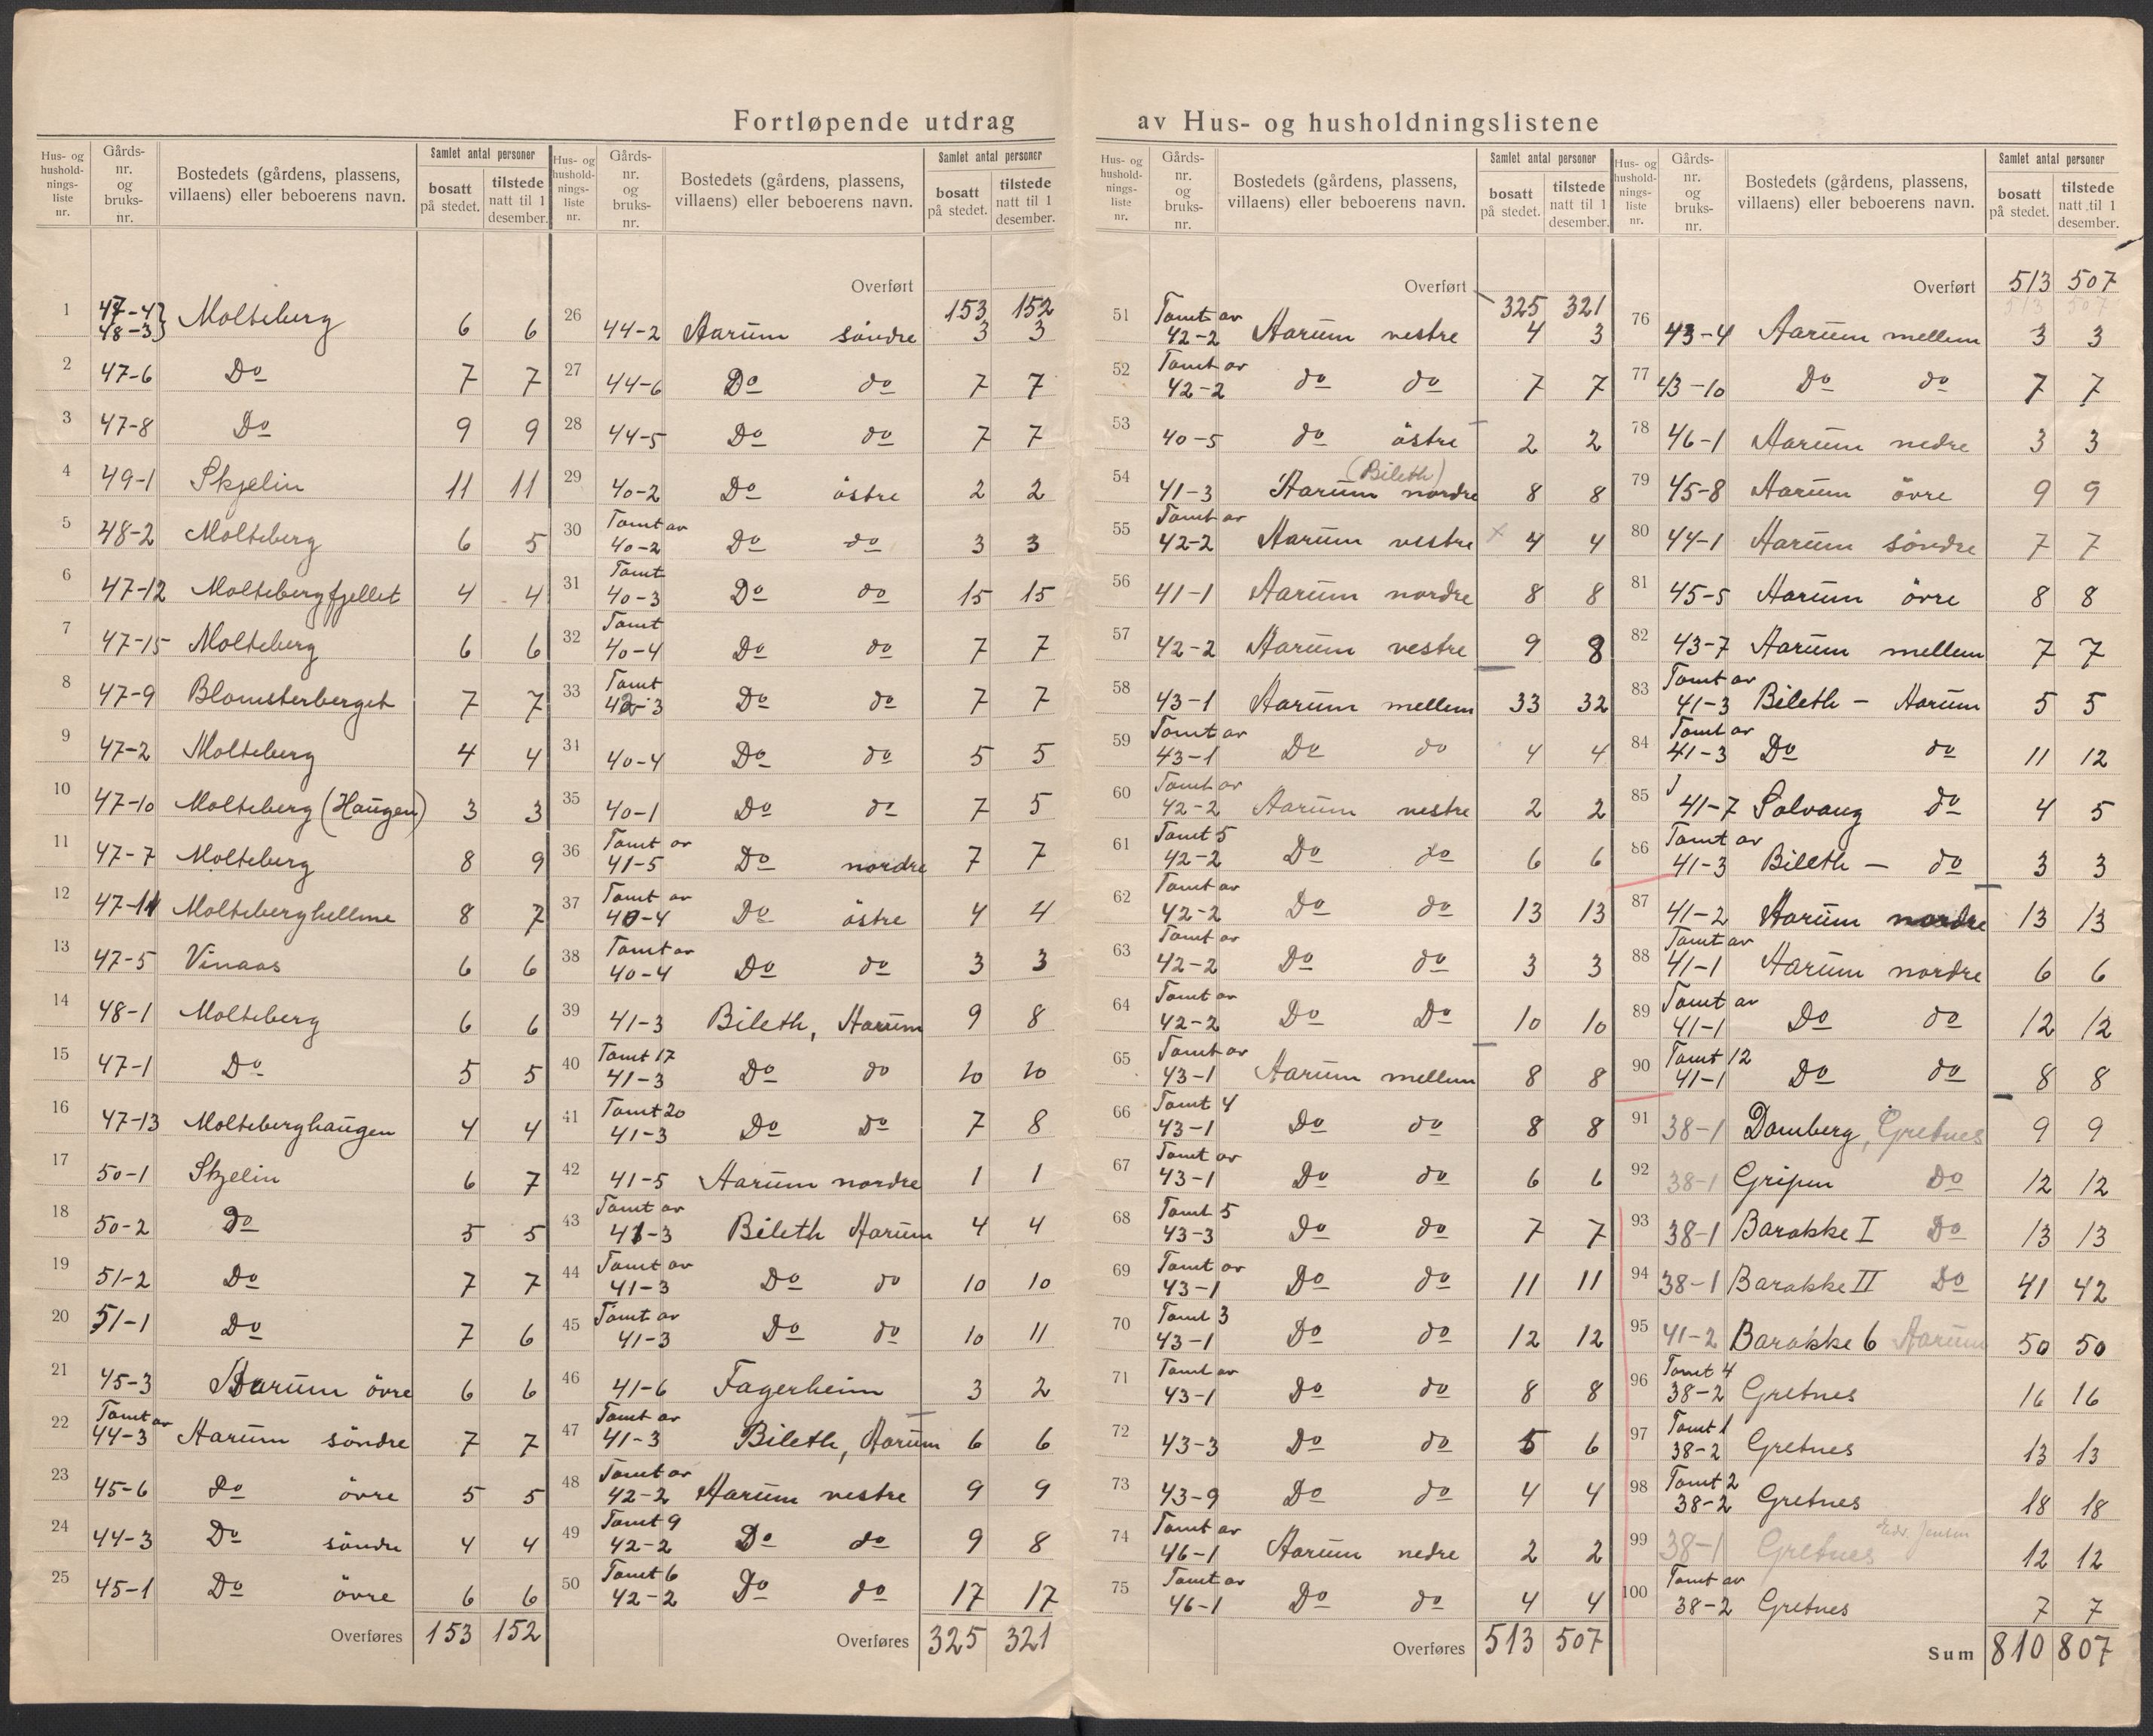 Fortløpende utdrag av Hus- og husholdningslistene
Hus- og hushold-nings-liste nr. | Gårds-nr. og bruks-nr. | Bostedets (gårdens, plassens, villaens) eller beboerens navn. | Samlet antal personer | bosatt på stedet. | tilstede natt til 1 desember.
1 | 47-4 48-3 | Molteberg | 6 | 6
2 | 47-6 | Do | 7 | 7
3 | 47-8 | Do | 9 | 9
4 | 49-1 | Skjelin | 11 | 11
5 | 48-2 | Molteberg | 6 | 5
6 | 47-12 | Moltebergfjellet | 4 | 4
7 | 47-15 | Molteberg | 6 | 6
8 | 47-9 | Blomsterberget | 7 | 7
9 | 47-2 | Molteberg | 4 | 4
10 | 47-10 | Molteberg (Haugen) | 3 | 3
11 | 47-7 | Molteberg | 8 | 9
12 | 47-11 | Molteberghellene | 8 | 7
13 | 47-5 | Vinaas | 6 | 6
14 | 48-1 | Molteberg | 6 | 6
15 | 47-1 | Do | 5 | 5
16 | 47-13 | Molteberghaugen | 4 | 4
17 | 50-1 | Skjelin | 6 | 7
18 | 50-2 | Do | 5 | 5
19 | 51-2 | Do | 7 | 7
20 | 51-1 | Do | 7 | 6
21 | 45-3 | Aarum övre | 6 | 6
22 | Tomt av 44-3 | Aarum söndre | 7 | 7
23 | 45-6 | Do övre | 5 | 5
24 | 44-3 | Do söndre | 4 | 4
25 | 45-1 | Do övre | 6 | 6
Overføres | 153 | 152
Hus- og hushold-nings-liste nr. | Gårds-nr. og bruks-nr. | Bostedets (gårdens, plassens, villaens) eller beboerens navn. | Samlet antal personer | bosatt på stedet. | tilstede natt til 1 desember.
Overført | 153 | 152
26 | 44-2 | Aarum söndre | 3 | 3
27 | 44-6 | Do do | 7 | 7
28 | 44-5 | Do do | 7 | 7
29 | 40-2 | Do östre | 2 | 2
30 | Tomt av 40-2 | Do do | 3 | 3
31 | Tomt 40-3 | Do do | 15 | 15
32 | Tomt 40-4 | Do do | 7 | 7
33 | Tomt 40-3 | Do do | 7 | 7
34 | 40-4 | Do do | 5 | 5
35 | 40-1 | Do do | 7 | 5
36 | Tomt av 41-5 | Do nordre | 7 | 7
37 | Tomt av 40-4 | Do östre | 4 | 4
38 | Tomt av 40-4 | Do do | 3 | 3
39 | 41-3 | Bileth, Aarum | 9 | 8
40 | Tomt 17 41-3 | Do do | 10 | 10
41 | Tomt 20 41-3 | Do Do | 7 | 8
42 | 41-5 | Aarum nordre | 1 | 1
43 | Tomt av 41-3 | Bileth Aarum | 4 | 4
44 | Tomt av 41-3 | Do do | 10 | 10
45 | Tomt av 41-3 | Do do | 10 | 11
46 | 41-6 | Fagerheim | 3 | 2
47 | Tomt av 41-3 | Bileth, Aarum | 6 | 6
48 | Tomt av 42-2 | Aarum vestre | 9 | 9
49 | Tomt 9 42-2 | Do do | 9 | 8
50 | Tomt 6 42-2 | Do do | 17 | 17
Overføres | 325 | 321
Hus- og hushold-nings-liste nr. | Gårds-nr. og bruks-nr. | Bostedets (gårdens, plassens, villaens) eller beboerens navn. | Samlet antal personer | bosatt på stedet. | tilstede natt til 1 desember.
Overført | 325 | 321
51 | Tomt av 42-2 | Aarum vestre | 4 | 3
52 | Tomt av 42-2 | do do | 7 | 7
53 | 40-5 | do östre | 2 | 2
54 | 41-3 | Aarum nordre (Bileth) | 8 | 8
55 | Tomt av 42-2 | Aarum vestre | x 4 | 4
56 | 41-1 | Aarum nordre | 8 | 8
57 | 42-2 | Aarum vestre | 9 | 8
58 | 43-1 | Aarum mellem | 33 | 32
59 | Tomt av 43-1 | Do do | 4 | 4
60 | Tomt av 42-2 | Aarum vestre | 2 | 2
61 | Tomt 5 42-2 | Do do | 6 | 6
62 | Tomt av 42-2 | Do do | 13 | 13
63 | Tomt av 42-2 | Do do | 3 | 3
64 | Tomt av 42-2 | Do Do | 10 | 10
65 | Tomt av 43-1 | Aarum mellem | 8 | 8
66 | Tomt 4 43-1 | Do do | 8 | 8
67 | Tomt av 43-1 | Do do | 6 | 6
68 | Tomt 5 43-3 | Do do | 7 | 7
69 | Tomt av 43-1 | Do do | 11 | 11
70 | Tomt 3 43-1 | Do do | 12 | 12
71 | Tomt av 43-1 | Do do | 8 | 8
72 | 43-3 | Do do | 5 | 6
73 | 43-9 | Do do | 4 | 4
74 | Tomt av 46-1 | Aarum nedre | 2 | 2
75 | Tomt av 46-1 | Do do | 4 | 4
Overføres | 513 | 507
Hus- og hushold-nings-liste nr. | Gårds-nr. og bruks-nr. | Bostedets (gårdens, plassens, villaens) eller beboerens navn. | Samlet antal personer | bosatt på stedet. | tilstede natt til 1 desember.
Overført | 513 | 507
513 | 507
76 | 43-4 | Aarum mellem | 3 | 3
77 | 43-10 | Do do | 7 | 7
78 | 46-1 | Aarum nedre | 3 | 3
79 | 45-8 | Aarum övre | 9 | 9
80 | 44-1 | Aarum söndre | 7 | 7
81 | 45-5 | Aarum övre | 8 | 8
82 | 43-7 | Aarum mellem | 7 | 7
83 | Tomt av 41-3 | Bileth - Aarum | 5 | 5
84 | Tomt av 41-3 | Do do | 11 | 12
85 | 41-7 | Solvang do | 4 | 5
86 | Tomt av 41-3 | Bileth - do | 3 | 3
87 | 41-2 | Aarum nordre | 13 | 13
88 | Tomt av 41-1 | Aarum nordre | 6 | 6
89 | Tomt av 41-1 | Do do | 12 | 12
90 | Tomt 12 41-1 | Do do | 8 | 8
91 | 38-1 | Damberg, Gretnes | 9 | 9
92 | 38-1 | Gripen Do | 12 | 12
93 | 38-1 | Barakke I Do | 13 | 13
94 | 38-1 | Barakke II Do | 41 | 42
95 | 41-2 | Barakke 6 Aarum | 50 | 50
96 | Tomt 4 38-2 | Gretnes | 16 | 16
97 | Tomt 1 38-2 | Gretnes | 13 | 13
98 | Tomt 2 38-2 | Gretnes | 18 | 18
99 | 38-1 | Gretnes Jensen | 12 | 12
100 | Tomt av 38-2 | Gretnes | 7 | 7
Sum | 810 | 807